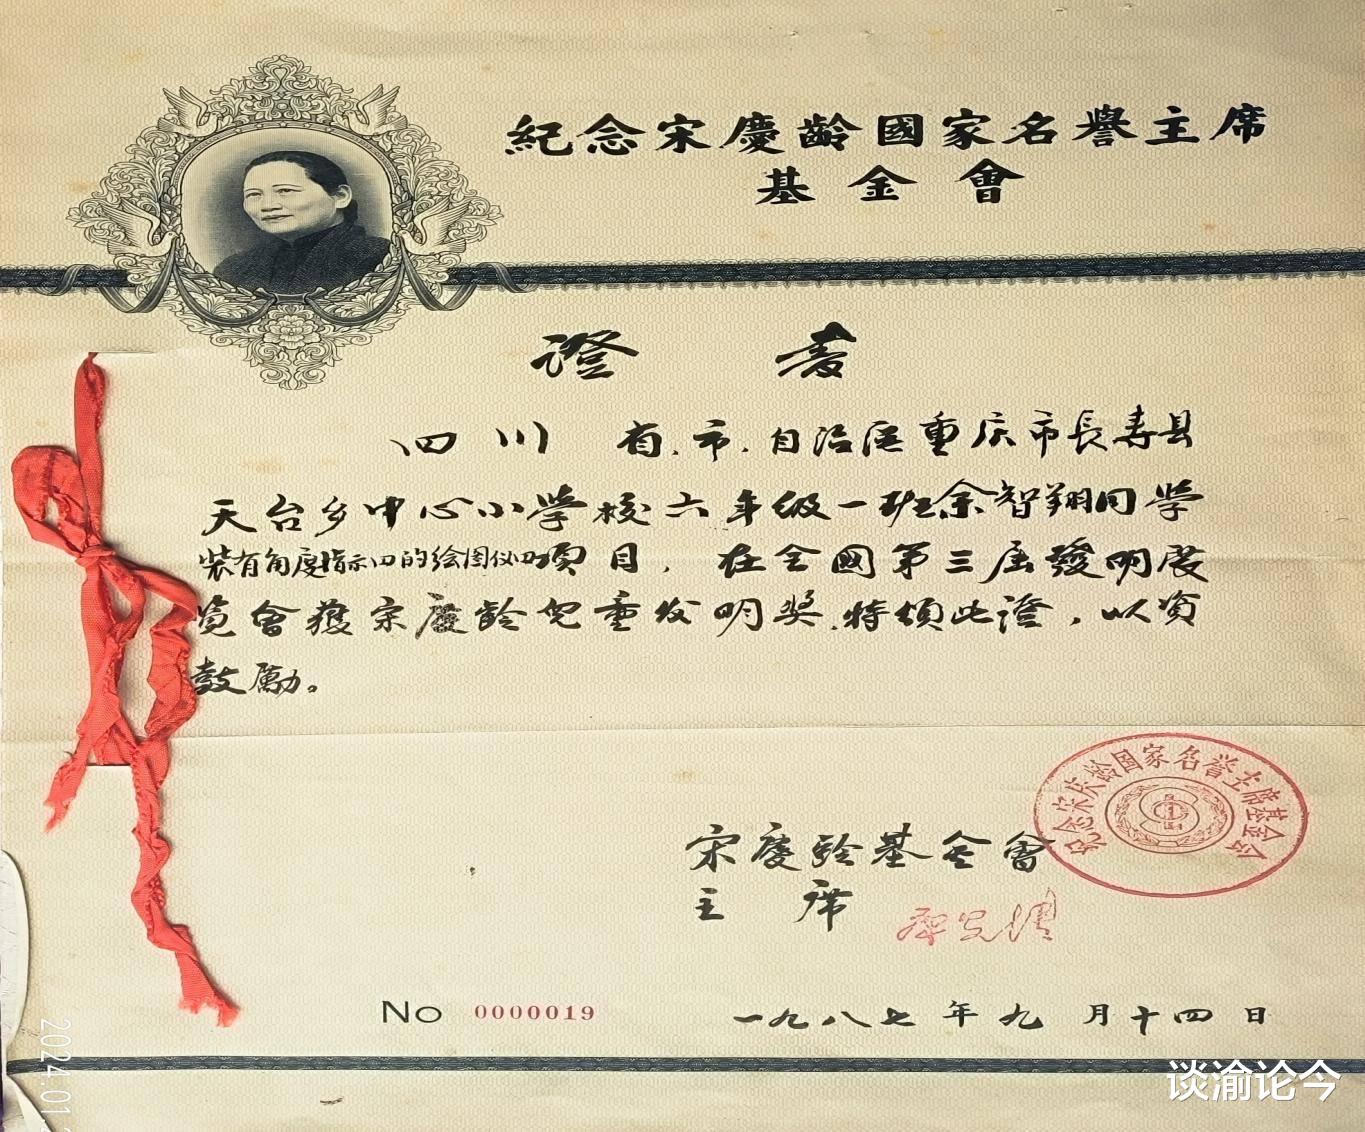 紀念宋慶齡國家名譽主席
基金會
證書
四川 省.市.自治区重庆市長寿县
天台乡中心小学校六年级一班余智翔同学
装有角度指示的绘图仪项目，在全國第三届發明展
览會獲宋慶齡児童发明奖.特頒此證，以资
鼓勵。
纪念宋庆龄国家名誉主席基金会
宋慶齡基金會
主席
No 0000019
一九八七年九月十四日
2024.01
谈渝论今